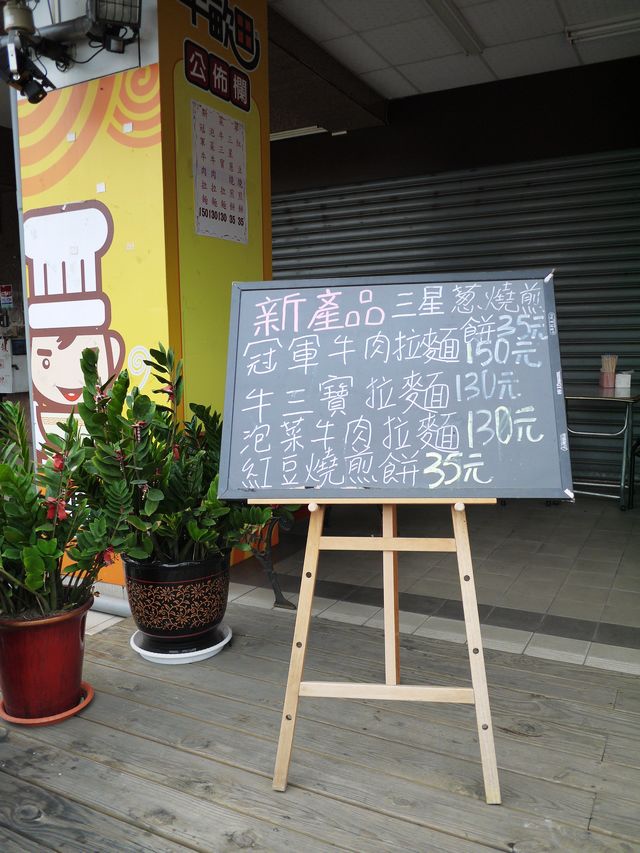 歐田
公佈欄
新產品三星蔥燒煎
餅35元
冠軍牛肉拉麵150元
牛三寶拉麵130元
泡菜牛肉拉麵130元
紅豆燒煎餅35元
冠軍牛肉拉麵
150 130 130 35 35